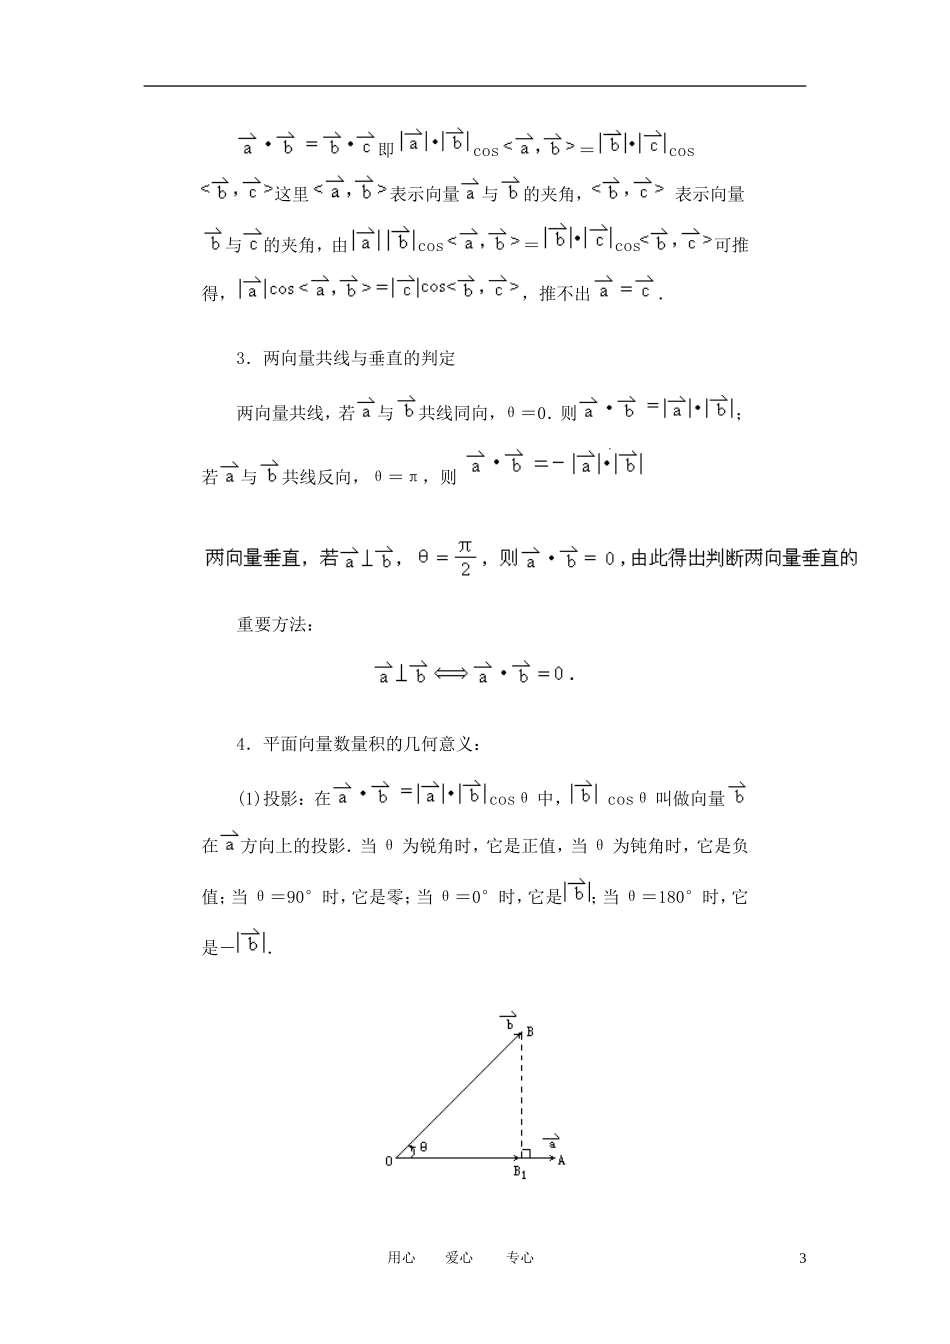 a⃗·b⃗=b⃗·c⃗即|a⃗|·|b⃗|cos<a⃗,b⃗>=|b⃗|·|c⃗|cos
<b⃗,c⃗>这里<a⃗,b⃗>表示向量a⃗与b⃗的夹角,<b⃗,c⃗> 表示向量
b⃗与c⃗的夹角,由|a⃗||b⃗|cos<a⃗,b⃗>=|b⃗|·|c⃗|cos<b⃗,c⃗>可推
得,|a⃗|cos<a⃗,b⃗>=|c⃗|cos<b⃗,c⃗>,推不出a⃗=c⃗.
3．两向量共线与垂直的判定
两向量共线,若a⃗与b⃗共线同向,θ=0.则a⃗·b⃗=|a⃗|·|b⃗|;
若a⃗与b⃗共线反向, θ=π,则 a⃗·b⃗=-|a⃗|·|b⃗|
两向量垂直,若a⃗⊥b⃗, θ=π/2,则a⃗·b⃗=0,由此得出判断两向量垂直的
重要方法:
a⃗⊥b⃗⟺a⃗·b⃗=0.
4．平面向量数量积的几何意义:
(1)投影:在a⃗·b⃗=|a⃗|·|b⃗|cosθ中,|b⃗| cosθ叫做向量b⃗
在a⃗方向上的投影.当θ为锐角时,它是正值,当θ为钝角时,它是负
值;当θ=90°时,它是零;当θ=0°时,它是|b⃗|;当θ=180°时,它
是-|b⃗|.
b⃗ B
a⃗
θ
O B₁ A
用心 爱心 专心 3